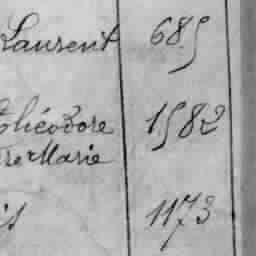 Laurent 685
Théodore 1582
re Marie
is 1173